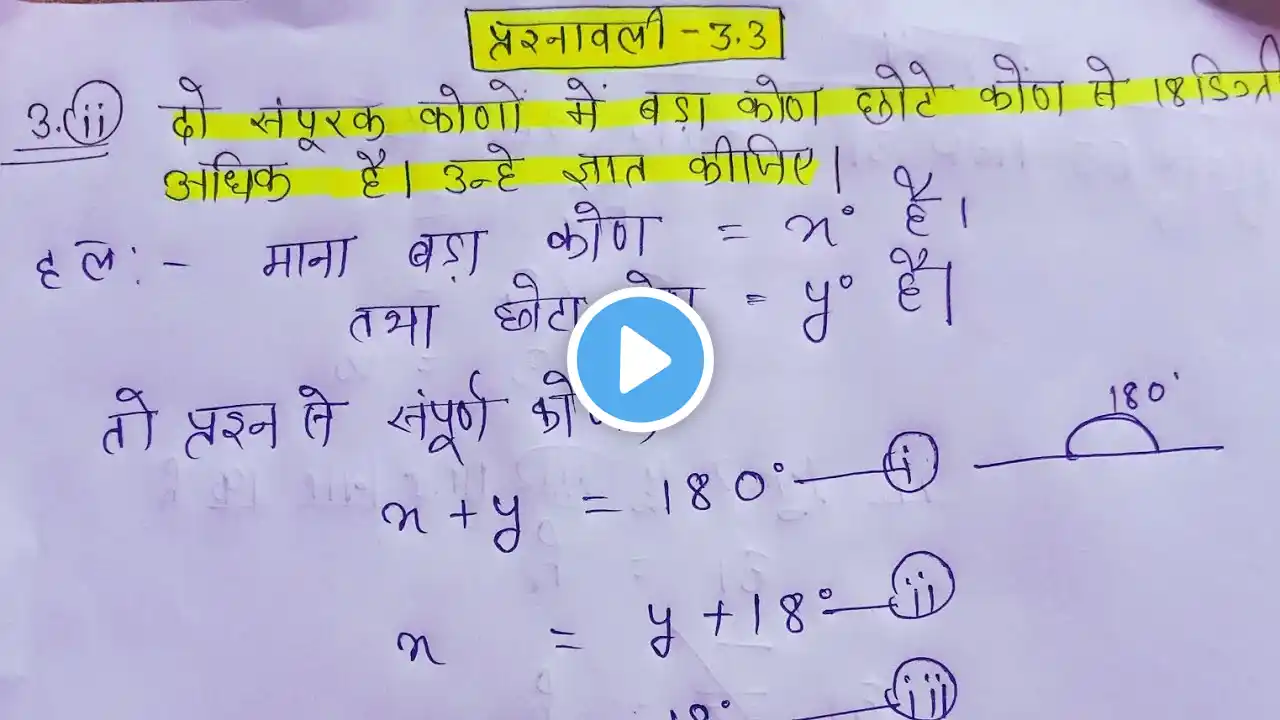 प्रश्नावली - 3.3
3. (ii) दो संपूरक कोणों में बड़ा कोण छोटे कोण से 18 डिग्री
अधिक है। उन्हे ज्ञात कीजिए।
हल :- माना बड़ा कोण = x° है।
तथा छोटा = y° है।
तो प्रश्न से संपूर्ण
180°
x + y = 180° — (i)
x = y + 18° — (ii)
18° — (iii)